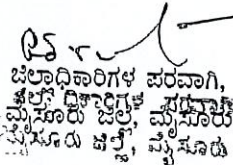 ಜಿಲ್ಲಾಧಿಕಾರಿಗಳ ಪರವಾಗಿ,
ಜಿಲ್ಲಾಧಿಕಾರಿಗಳ ಪರವಾಗಿ
ಮೈಸೂರು ಜಿಲ್ಲೆ, ಮೈಸೂರು
ಮೈಸೂರು ಜಿಲ್ಲೆ, ಮೈಸೂರು